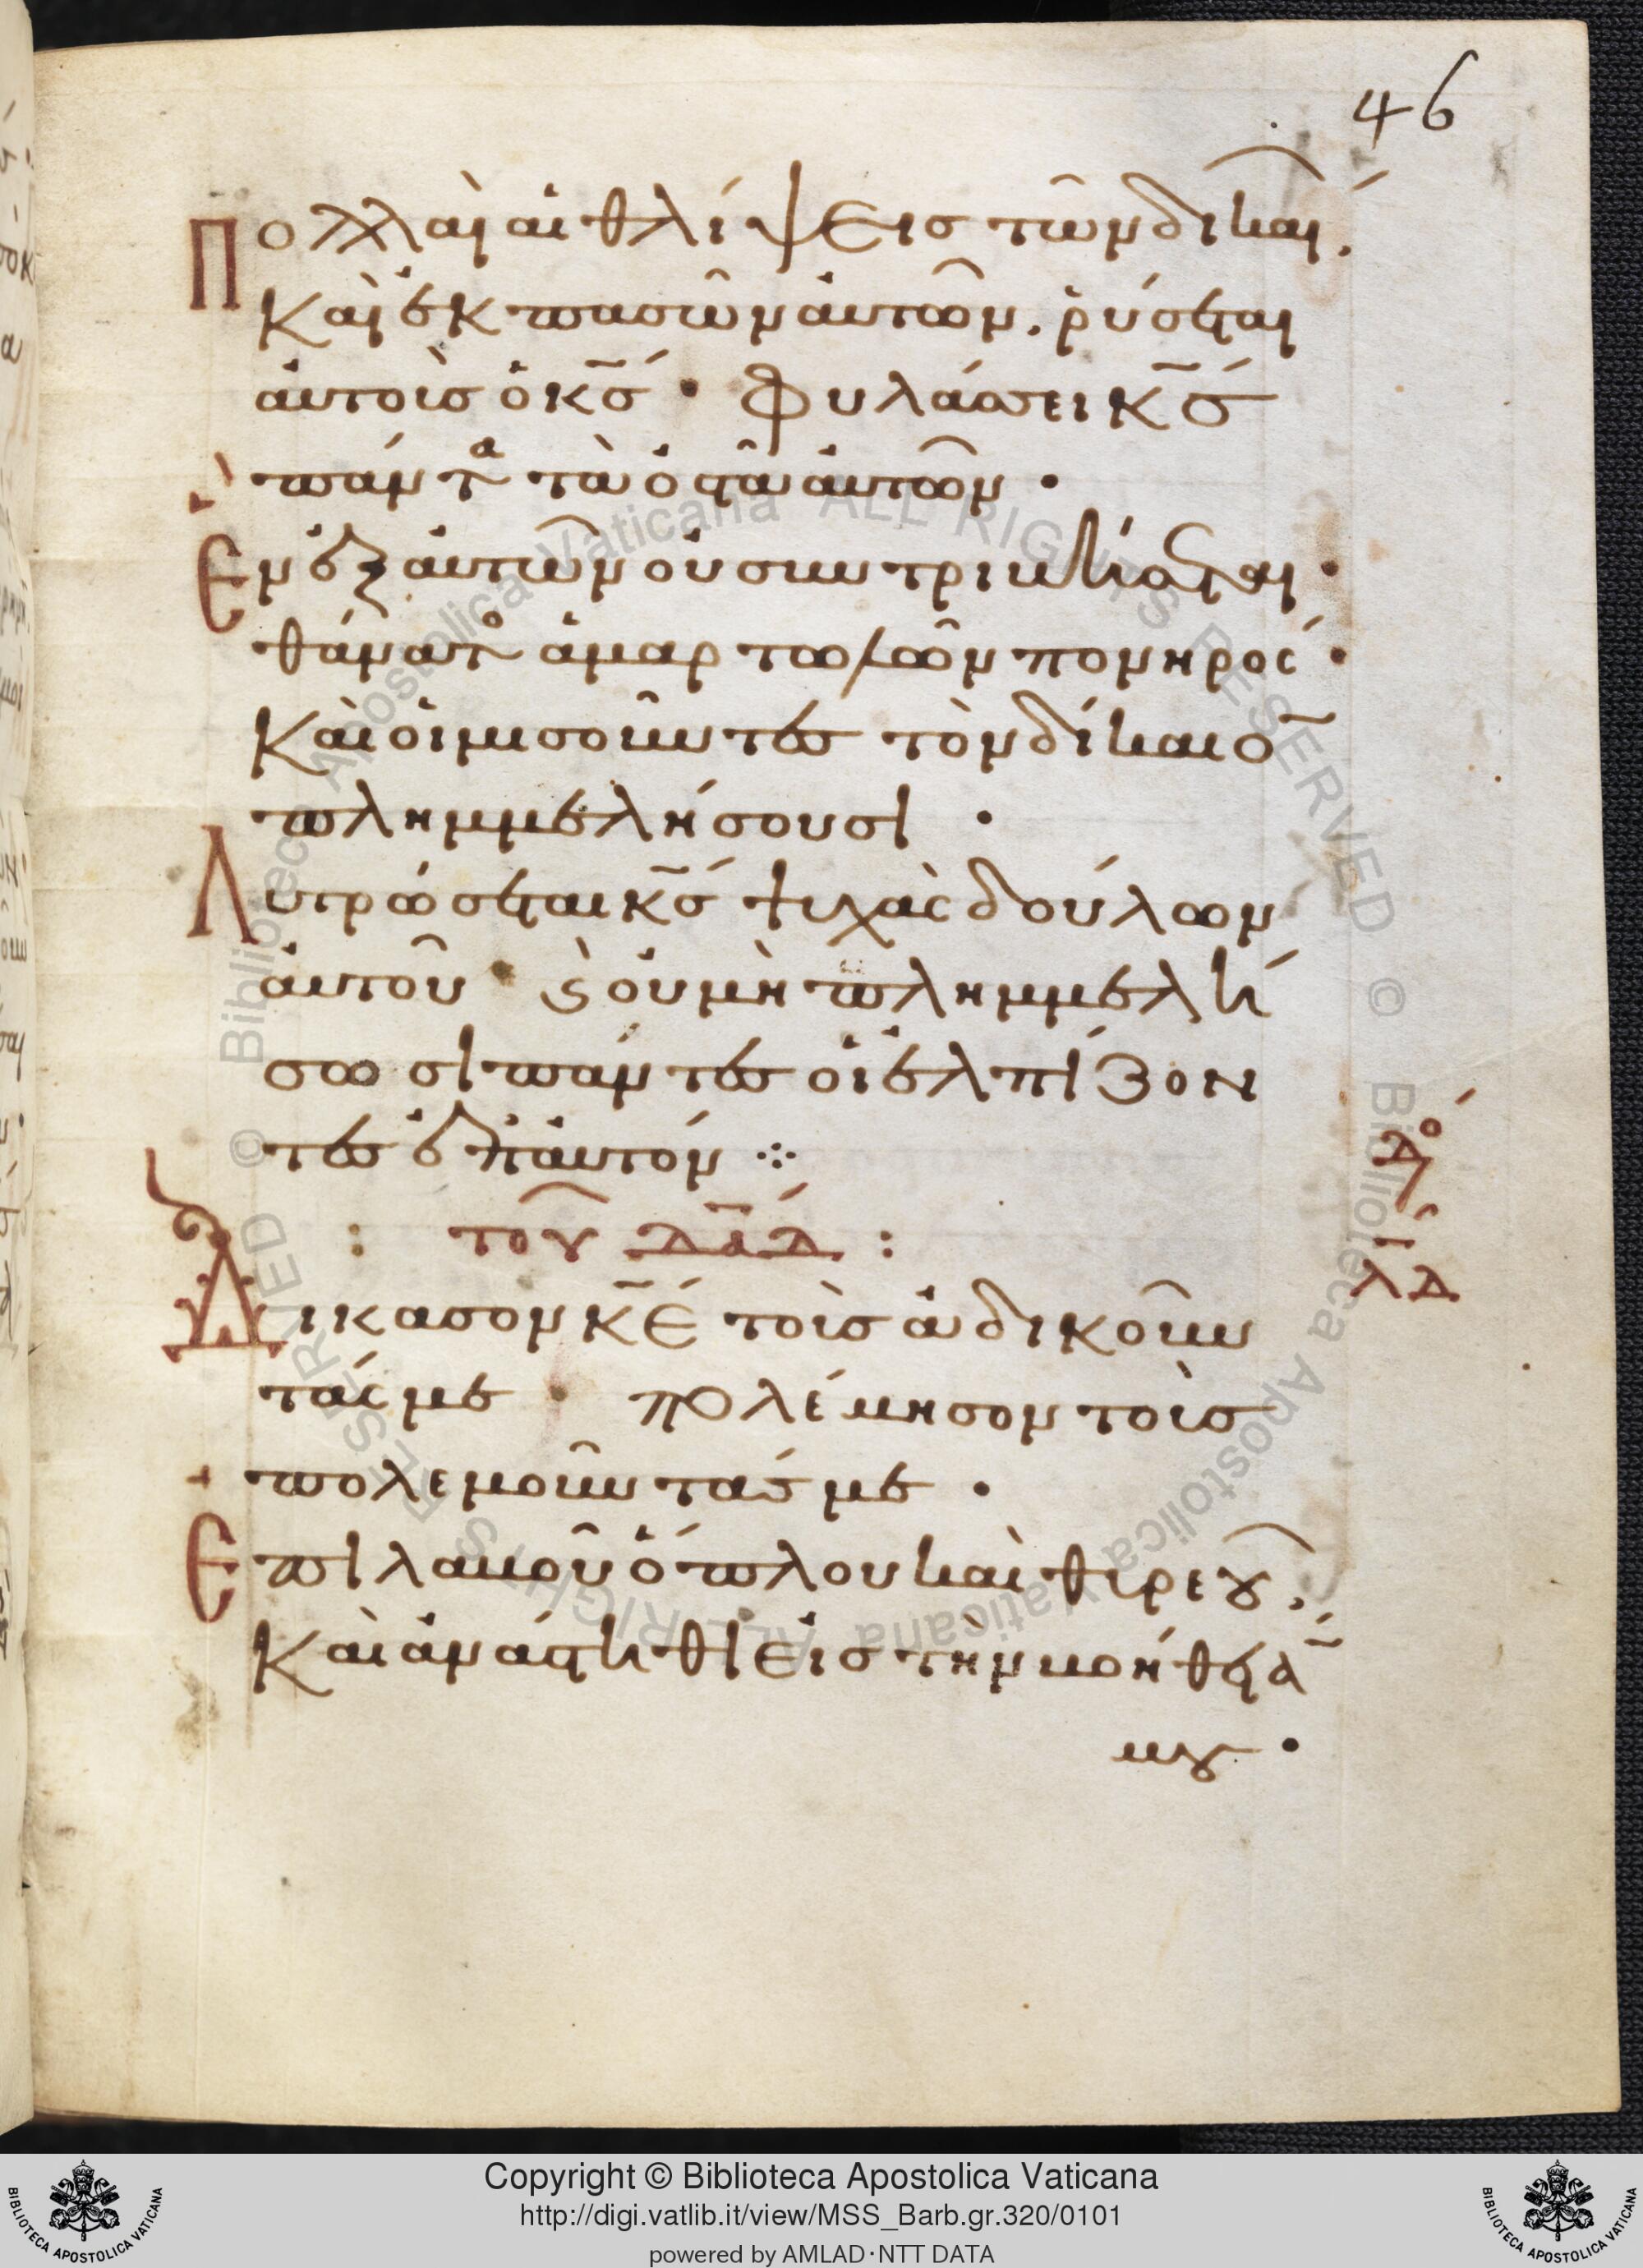 46
Πολλαὶ αἱ θλίψεις τῶν δικαί.
Καὶ ἐκ πασῶν αὐτῶν. ῥύσεται
αὐτοὺς ὁ κς̄ · Φυλάσσει κς̄
πάντα τὰ ὀστᾶ αὐτῶν ·
Ἓν ἐξ αὐτῶν οὐ συντριβήσεται ·
θάνατος ἁμαρτωλῶν πονηρός ·
Καὶ οἱ μισοῦντες τὸν δίκαιο̄
πλημμελήσουσι ·
Λυτρώσεται κς̄ ψυχὰς δούλων
αὐτοῦ · ϗ οὐ μὴ πλημμελή
σωσι πάντες οἱ ἐλπίζον
τες ἐπ' αὐτόν ⁘
: τοῦ Δᾱδ :
Δίκασον κε̄ τοὺς ἀδικοῦν
τάς με · πολέμησον τοὺς
πολεμοῦντάς με ·
Ἐπιλαβοῦ ὅπλου καὶ θυρεοῦ.
Καὶ ἀνάστηθι εἰς τὴν βοήθειά̄
μου ·
λδ
Copyright © Biblioteca Apostolica Vaticana
http://digi.vatlib.it/view/MSS_Barb.gr.320/0101
powered by AMLAD·NTT DATA
BIBLIOTECA APOSTOLICA VATICANA
BIBLIOTECA APOSTOLICA VATICANA
© Biblioteca Apostolica Vaticana ALL RIGHTS RESERVED
© Biblioteca Apostolica Vaticana ALL RIGHTS RESERVED